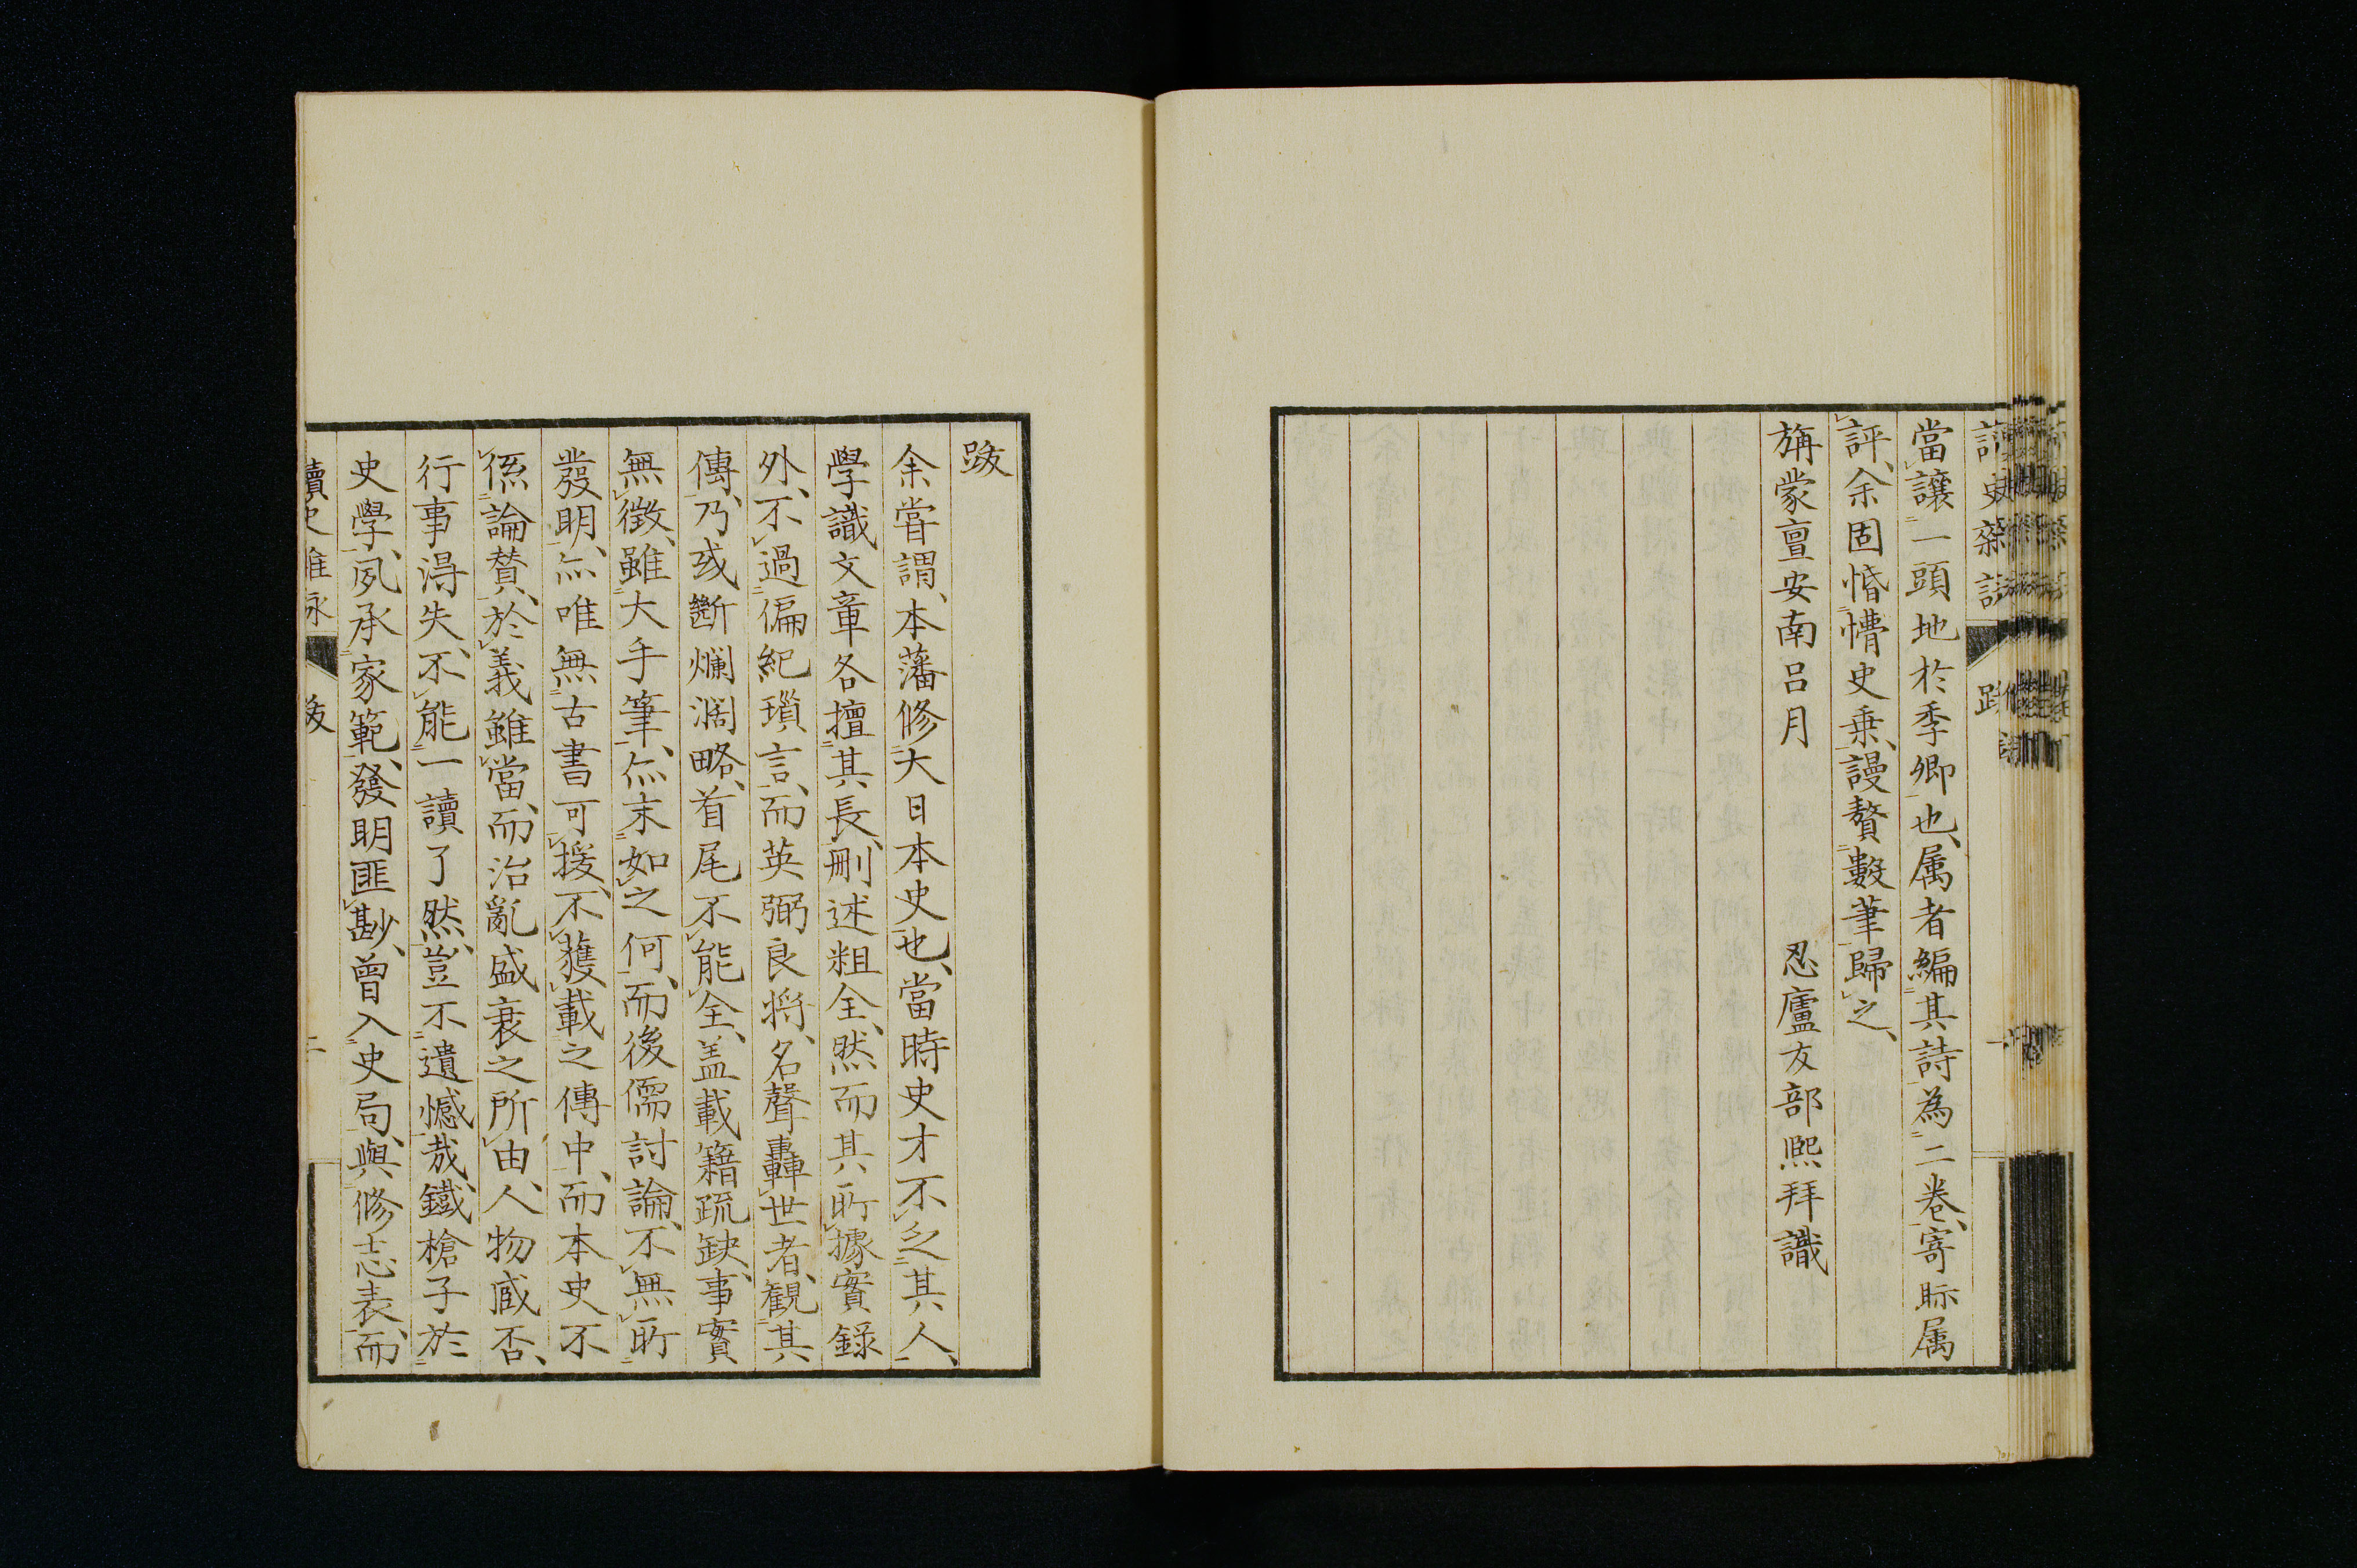 當讓一頭地於季卿也、属者編其詩為二卷、寄眎属
評、余固惛懵史乗、謾贅數筆歸之、
旃蒙亶安南呂月　　　忍廬友部熙拜識
跋
余甞謂、本藩修大日本史也、當時史才不乏其人、
學識文章各擅其長、刪述粗全、然而其所據實錄
外、不過偏紀瑣言、而英弼良将、名聲轟世者、観其
傳、乃或斷爛濶略、首尾不能全、盖載籍疏缺、事實
無徴、雖大手筆、亦末如之何、而後儒討論、不無所
發明、亦唯無古書可援、不獲載之傳中、而本史不
係論賛、於義雖當、而治亂盛衰之所由、人物臧否、
行事得失、不能一讀了然、豈不遺憾哉、鐵槍子於
史學、夙承家範、發明匪尠、曾入史局、與修志表、而